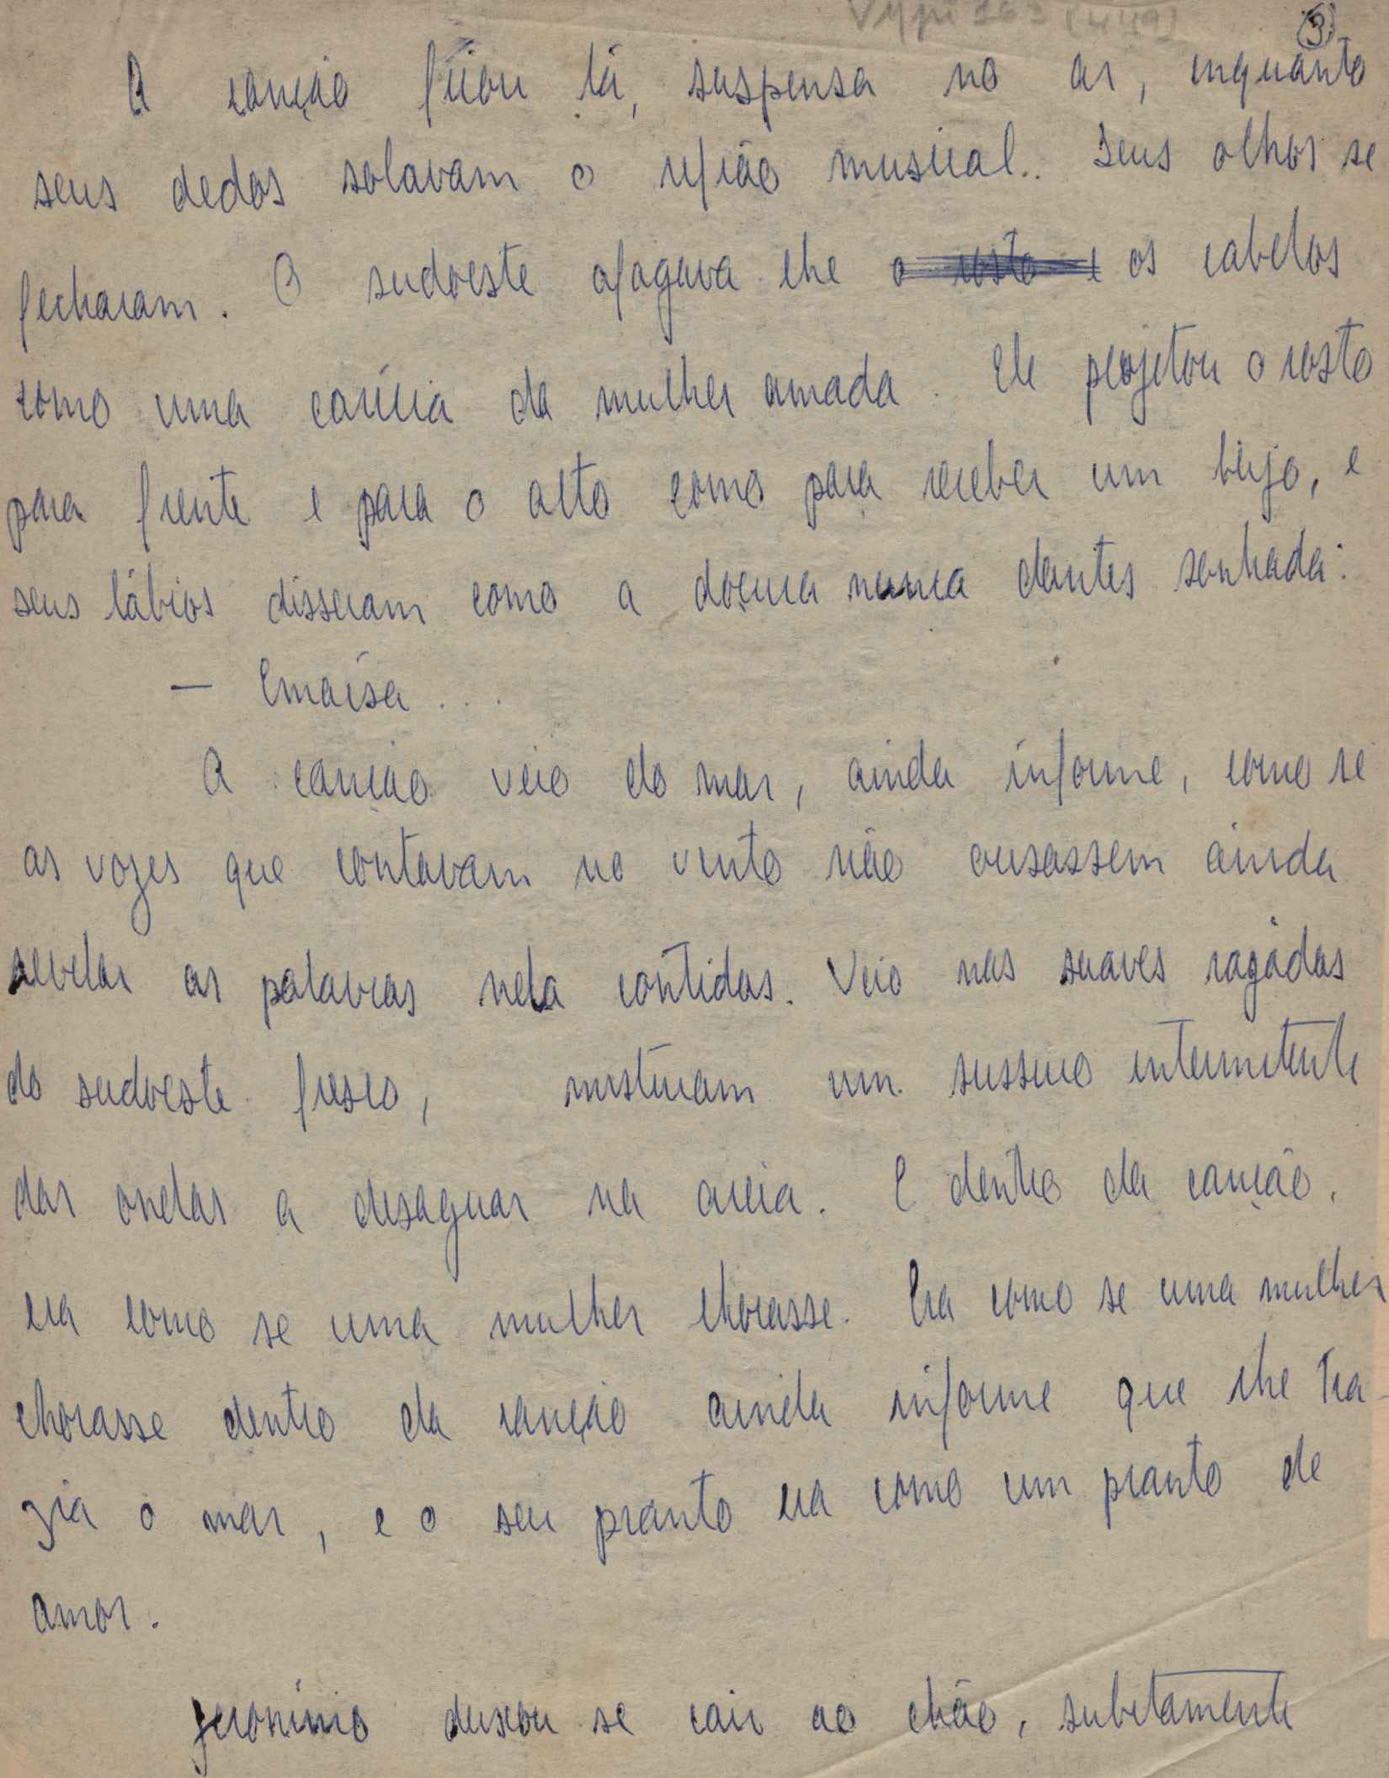 (3)
A canção ficou lá, suspensa no ar, enquanto
seus dedos solavam o refrão musical.. Seus olhos se
fecharam. O sudoeste afagava lhe o rosto e os cabelos
como uma carícia da mulher amada. Ele projetou o rosto
para frente e para o alto como para receber um beijo, e
seus lábios disseram como a doçura nunca dantes sonhada:
— Emaísa...
A canção veio do mar, ainda informe, como se
as vozes que cantavam no vento não ousassem ainda
revelar as palavras nela contidas. Veio nas suaves rajadas
do sudoeste fresco, misturam um sussuro intermitente
das ondas a desaguar na areia. E dentro da canção,
era como se uma mulher chorasse. Era como se uma mulher
chorasse dentro da canção ainda informe que lhe tra-
zia o mar, e o seu pranto era como um pranto de
amor.
Jeronimo deixou se cair ao chão, subitamente